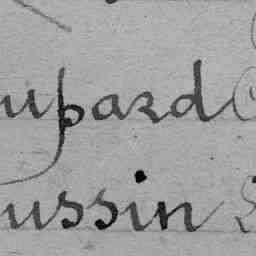 upard
ussin